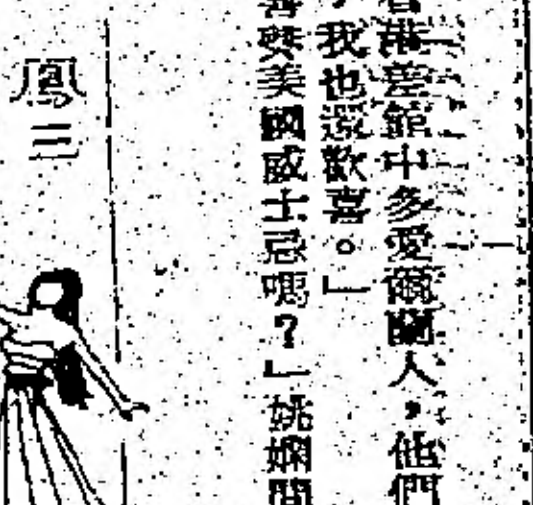 差館中多愛爾蘭人，他們
我也還歡喜。」
美國威士忌嗎？」姚嫻問
鳳三